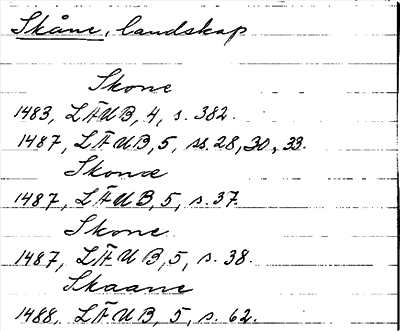 Skåne, landskap
Skone
1483, LÄUB, 4, s. 382.
1487, LÄUB, 5, ss. 28, 30, 33.
Skonæ
1487, LÄUB, 5, s. 37
Skone
1487, LÄUB, 5, s. 38.
Skaane
1488, LÄUB, 5, s. 62.